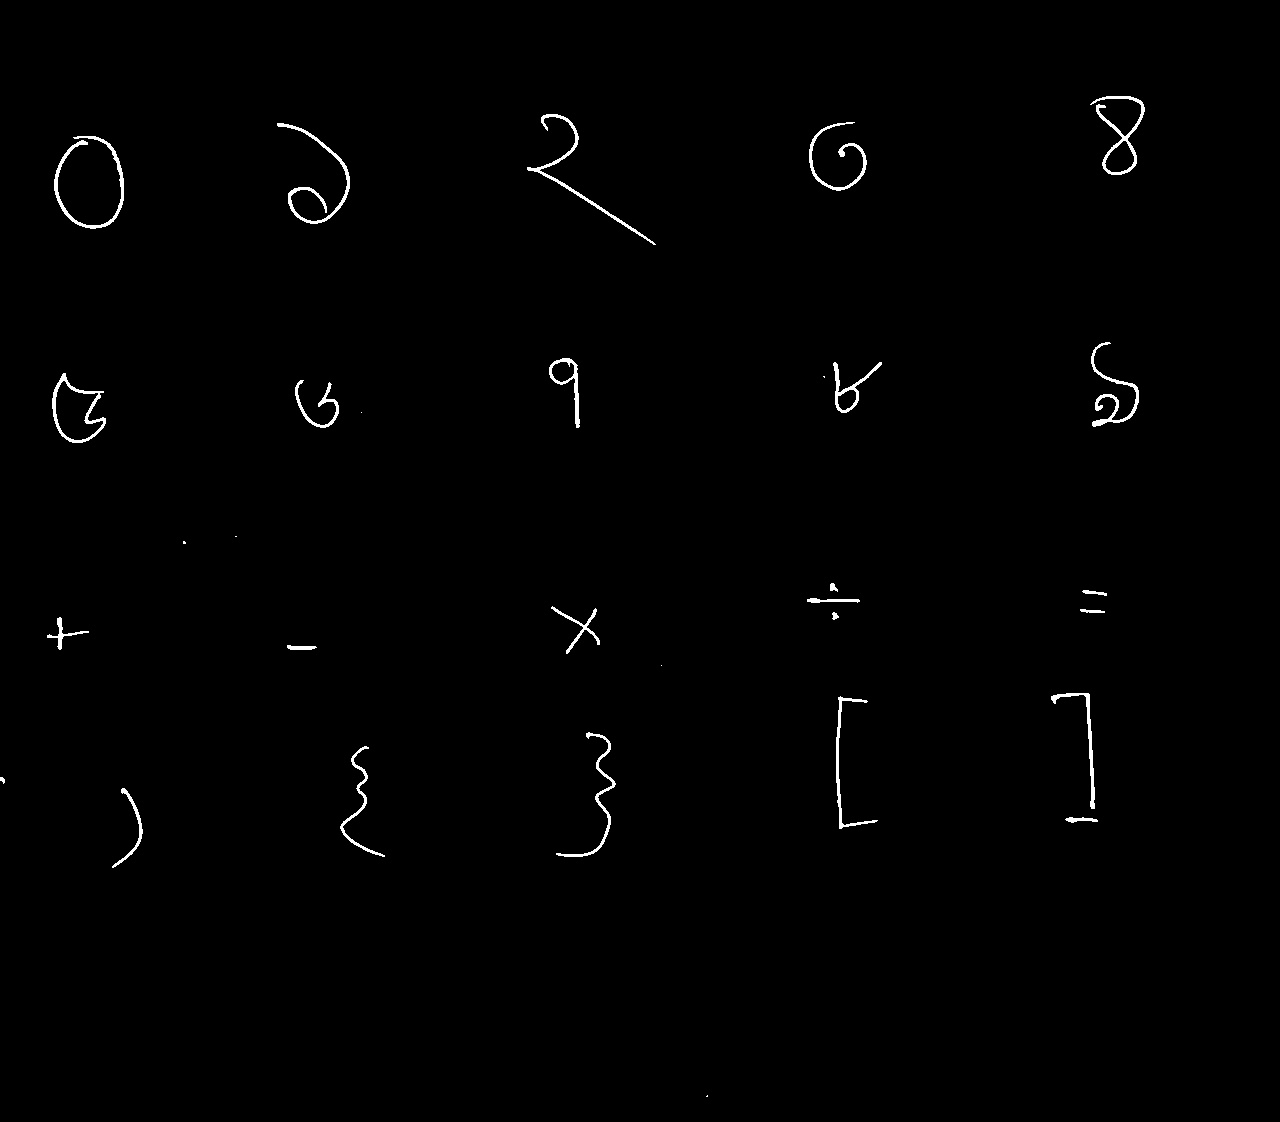 ০ ১ ২ ৩ ৪
৫ ৬ ৭ ৮ ৯
+ - × ÷ =
) { } [ ]